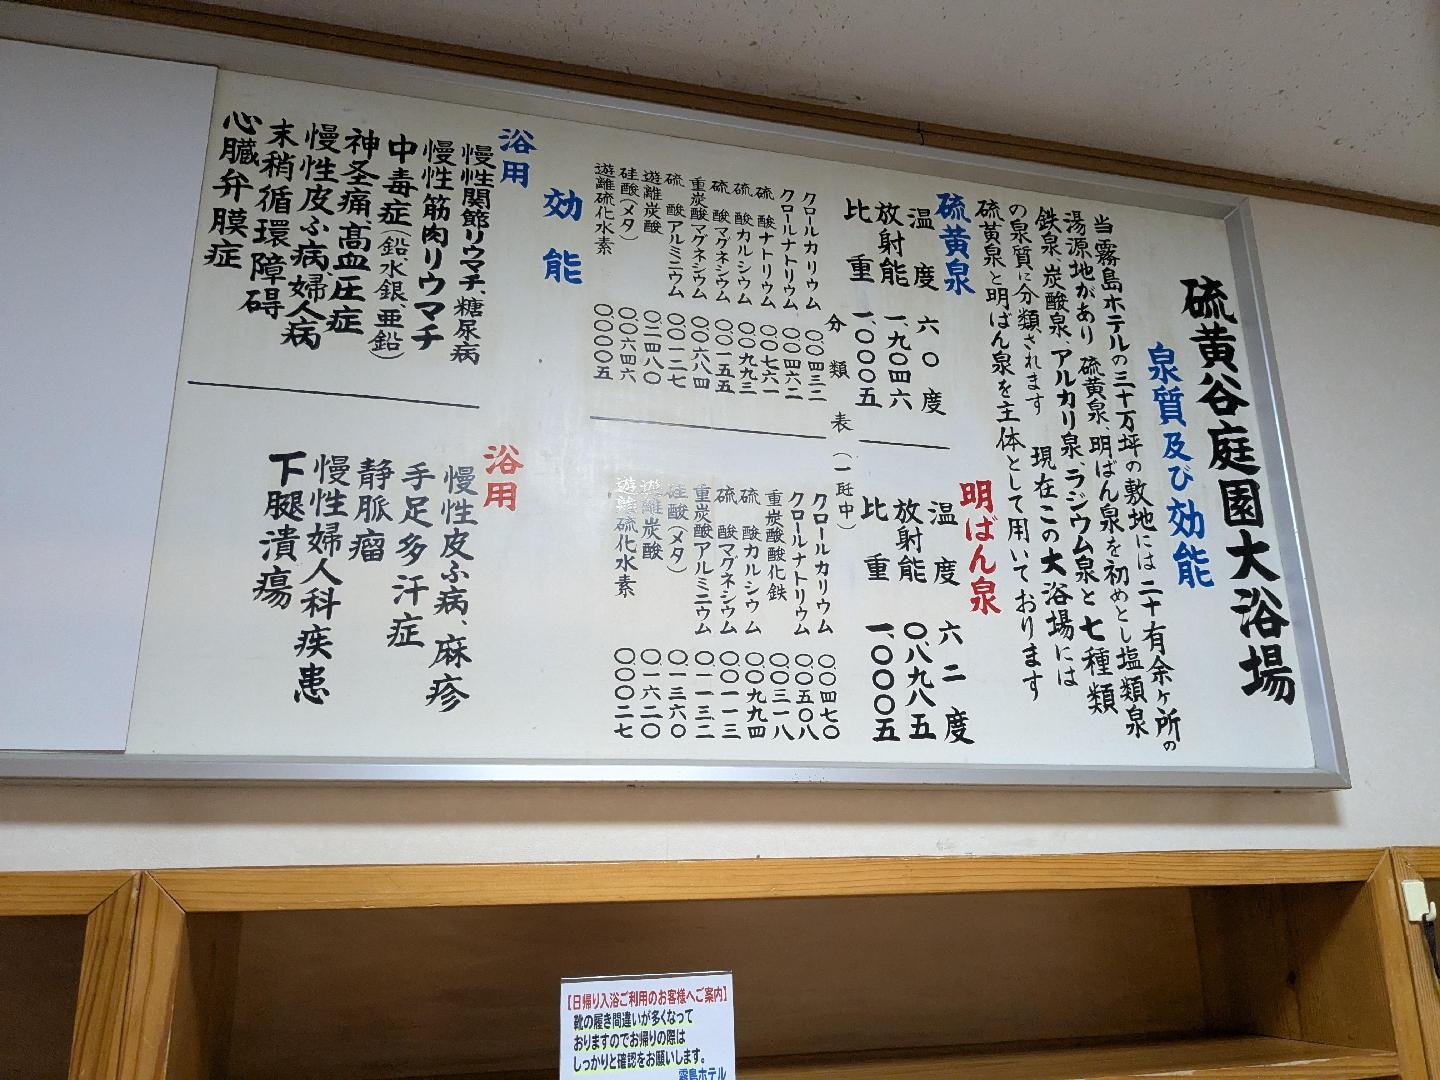 硫黄谷庭園大浴場
泉質及び効能
当霧島ホテルの三十万坪の敷地には二十有余ヶ所の
湯源地があり硫黄泉、明ばん泉を初めとし塩類泉
鉄泉、炭酸泉、アルカリ泉、ラジウム泉と七種類
の泉質に分類されます 現在この大浴場には
硫黄泉と明ばん泉を主体として用いております
硫黄泉
温度 六〇度
放射能 一、九〇四六
比重 一、〇〇〇五
明ばん泉
温度 六二度
放射能 〇、八九八五
比重 一、〇〇〇五
分類表(一瓩中)
クロールカリウム 〇、〇四三二
クロールナトリウム 〇、〇四六二
硫酸ナトリウム 〇、〇七六一
硫酸カルシウム 〇、〇九九三
硫酸マグネシウム 〇、〇一五五
重炭酸マグネシウム 〇、〇六八四
硫酸アルミニウム 〇、〇一二七
遊離炭酸 〇、二四八〇
硅酸(メタ) 〇、〇六四六
遊離硫化水素 〇、〇〇〇五
クロールカリウム 〇、〇四七〇
クロールナトリウム 〇、〇五〇八
重炭酸酸化鉄 〇、〇三一八
硫酸カルシウム 〇、〇九九四
硫酸マグネシウム 〇、〇一一三
重炭酸アルミニウム 〇、〇一三二
硅酸(メタ) 〇、一三六〇
遊離炭酸 〇、一六二〇
遊離硫化水素 〇、〇〇二七
効能
浴用
慢性関節リウマチ、糖尿病
慢性筋肉リウマチ
中毒症(鉛水銀、亜鉛)
神圣痛、高血圧症
慢性皮ふ病、婦人病
末梢循環障碍
心臓弁膜症
浴用
慢性皮ふ病、麻疹
手足多汗症
静脈瘤
慢性婦人科疾患
下腿潰瘍
【日帰り入浴ご利用のお客様へご案内】
靴の履き間違いが多くなって
おりますのでお帰りの際は
しっかりと確認をお願いします。
霧島ホテル